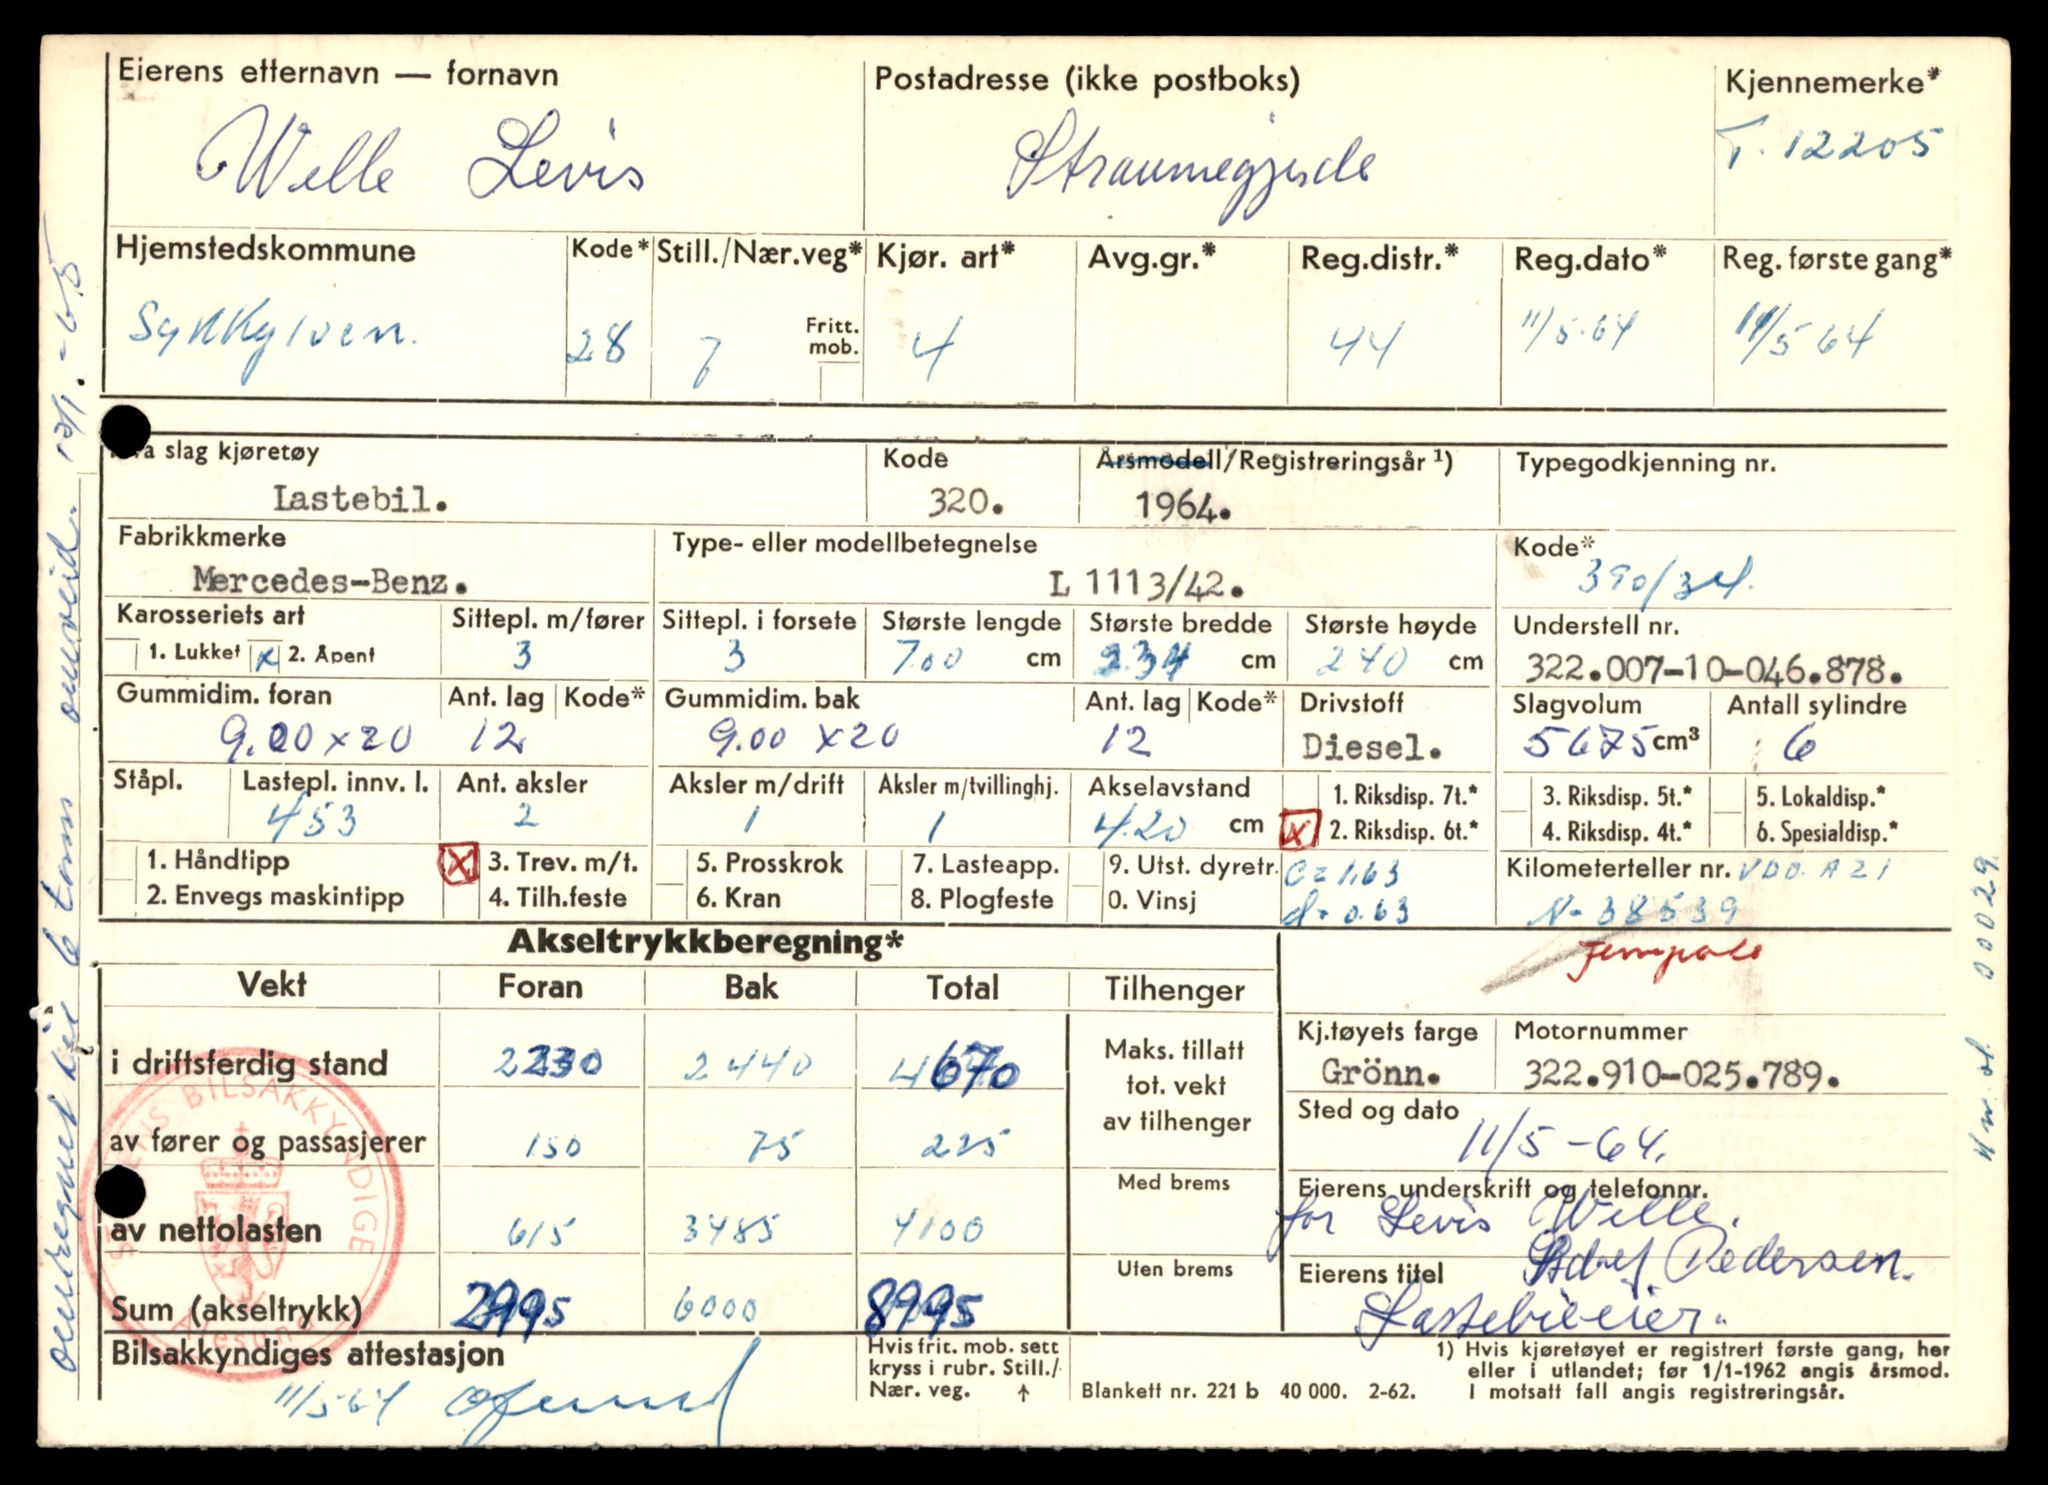 Eierens etternavn — fornavn
Postadresse (ikke postboks)
Kjennemerke*
Welle Levis
Straumegjerde
T. 12205
Hjemstedskommune
Kode*
Still./Nær.veg*
Kjør. art*
Avg.gr.*
Reg.distr.*
Reg.dato*
Reg. første gang*
Sykkylven.
28
7
Fritt. mob.
4
44
11/5-64
11/5 64
slag kjøretøy
Kode
Årsmodell/Registreringsår 1)
Typegodkjenning nr.
Lastebil.
320.
1964.
Fabrikkmerke
Type- eller modellbetegnelse
Kode*
Mercedes-Benz.
L 1113/42.
390/34.
Karosseriets art
Sittepl. m/fører
Sittepl. i forsete
Største lengde
Største bredde
Største høyde
Understell nr.
1. Lukket x 2. Åpent
3
3
700 cm
234 cm
240 cm
322.007-10-046.878.
Gummidim. foran
Ant. lag
Kode*
Gummidim. bak
Ant. lag
Kode*
Drivstoff
Slagvolum
Antall sylindre
9.00 x 20
12
9.00 x 20
12
Diesel.
5675 cm³
6
Ståpl.
Lastepl. innv. l.
Ant. aksler
Aksler m/drift
Aksler m/tvillinghj.
Akselavstand
1. Riksdisp. 7t.*
3. Riksdisp. 5t.*
5. Lokaldisp.*
453
2
1
1
420 cm
x 2. Riksdisp. 6t.*
4. Riksdisp. 4t.*
6. Spesialdisp.*
1. Håndtipp
x 3. Trev. m/t.
5. Prosskrok
7. Lasteapp.
9. Utst. dyretr.
c = 1,63
Kilometerteller nr. VDO. A 21
2. Envegs maskintipp
4. Tilh.feste
6. Kran
8. Plogfeste
0. Vinsj
d = 0.63
N- 38539
Akseltrykkberegning*
Vekt
Foran
Bak
Total
Tilhenger
i driftsferdig stand
2230
2440
4670
Maks. tillatt
tot. vekt
av tilhenger
Kj.tøyets farge
Motornummer
Grönn.
322.910-025.789.
Sted og dato
av fører og passasjerer
150
75
225
11/5-64.
Med brems
Eierens underskrift og telefonnr.
for Levis Welle.
av nettolasten
615
3485
4100
Pedersen.
Uten brems
Eierens titel
Sum (akseltrykk)
2995
6000
8995
Lastebileier.
Bilsakkyndiges attestasjon
11/5-64
Hvis frit. mob. sett
kryss i rubr. Still./
Nær. veg. ↑
Blankett nr. 221 b 40 000. 2-62.
1) Hvis kjøretøyet er registrert første gang, her
eller i utlandet; før 1/1-1962 angis årsmod.
I motsatt fall angis registreringsår.
STATENS BILSAKKYNDIGE
Ålesund
omregnet til 6 tonn
-65
00029.